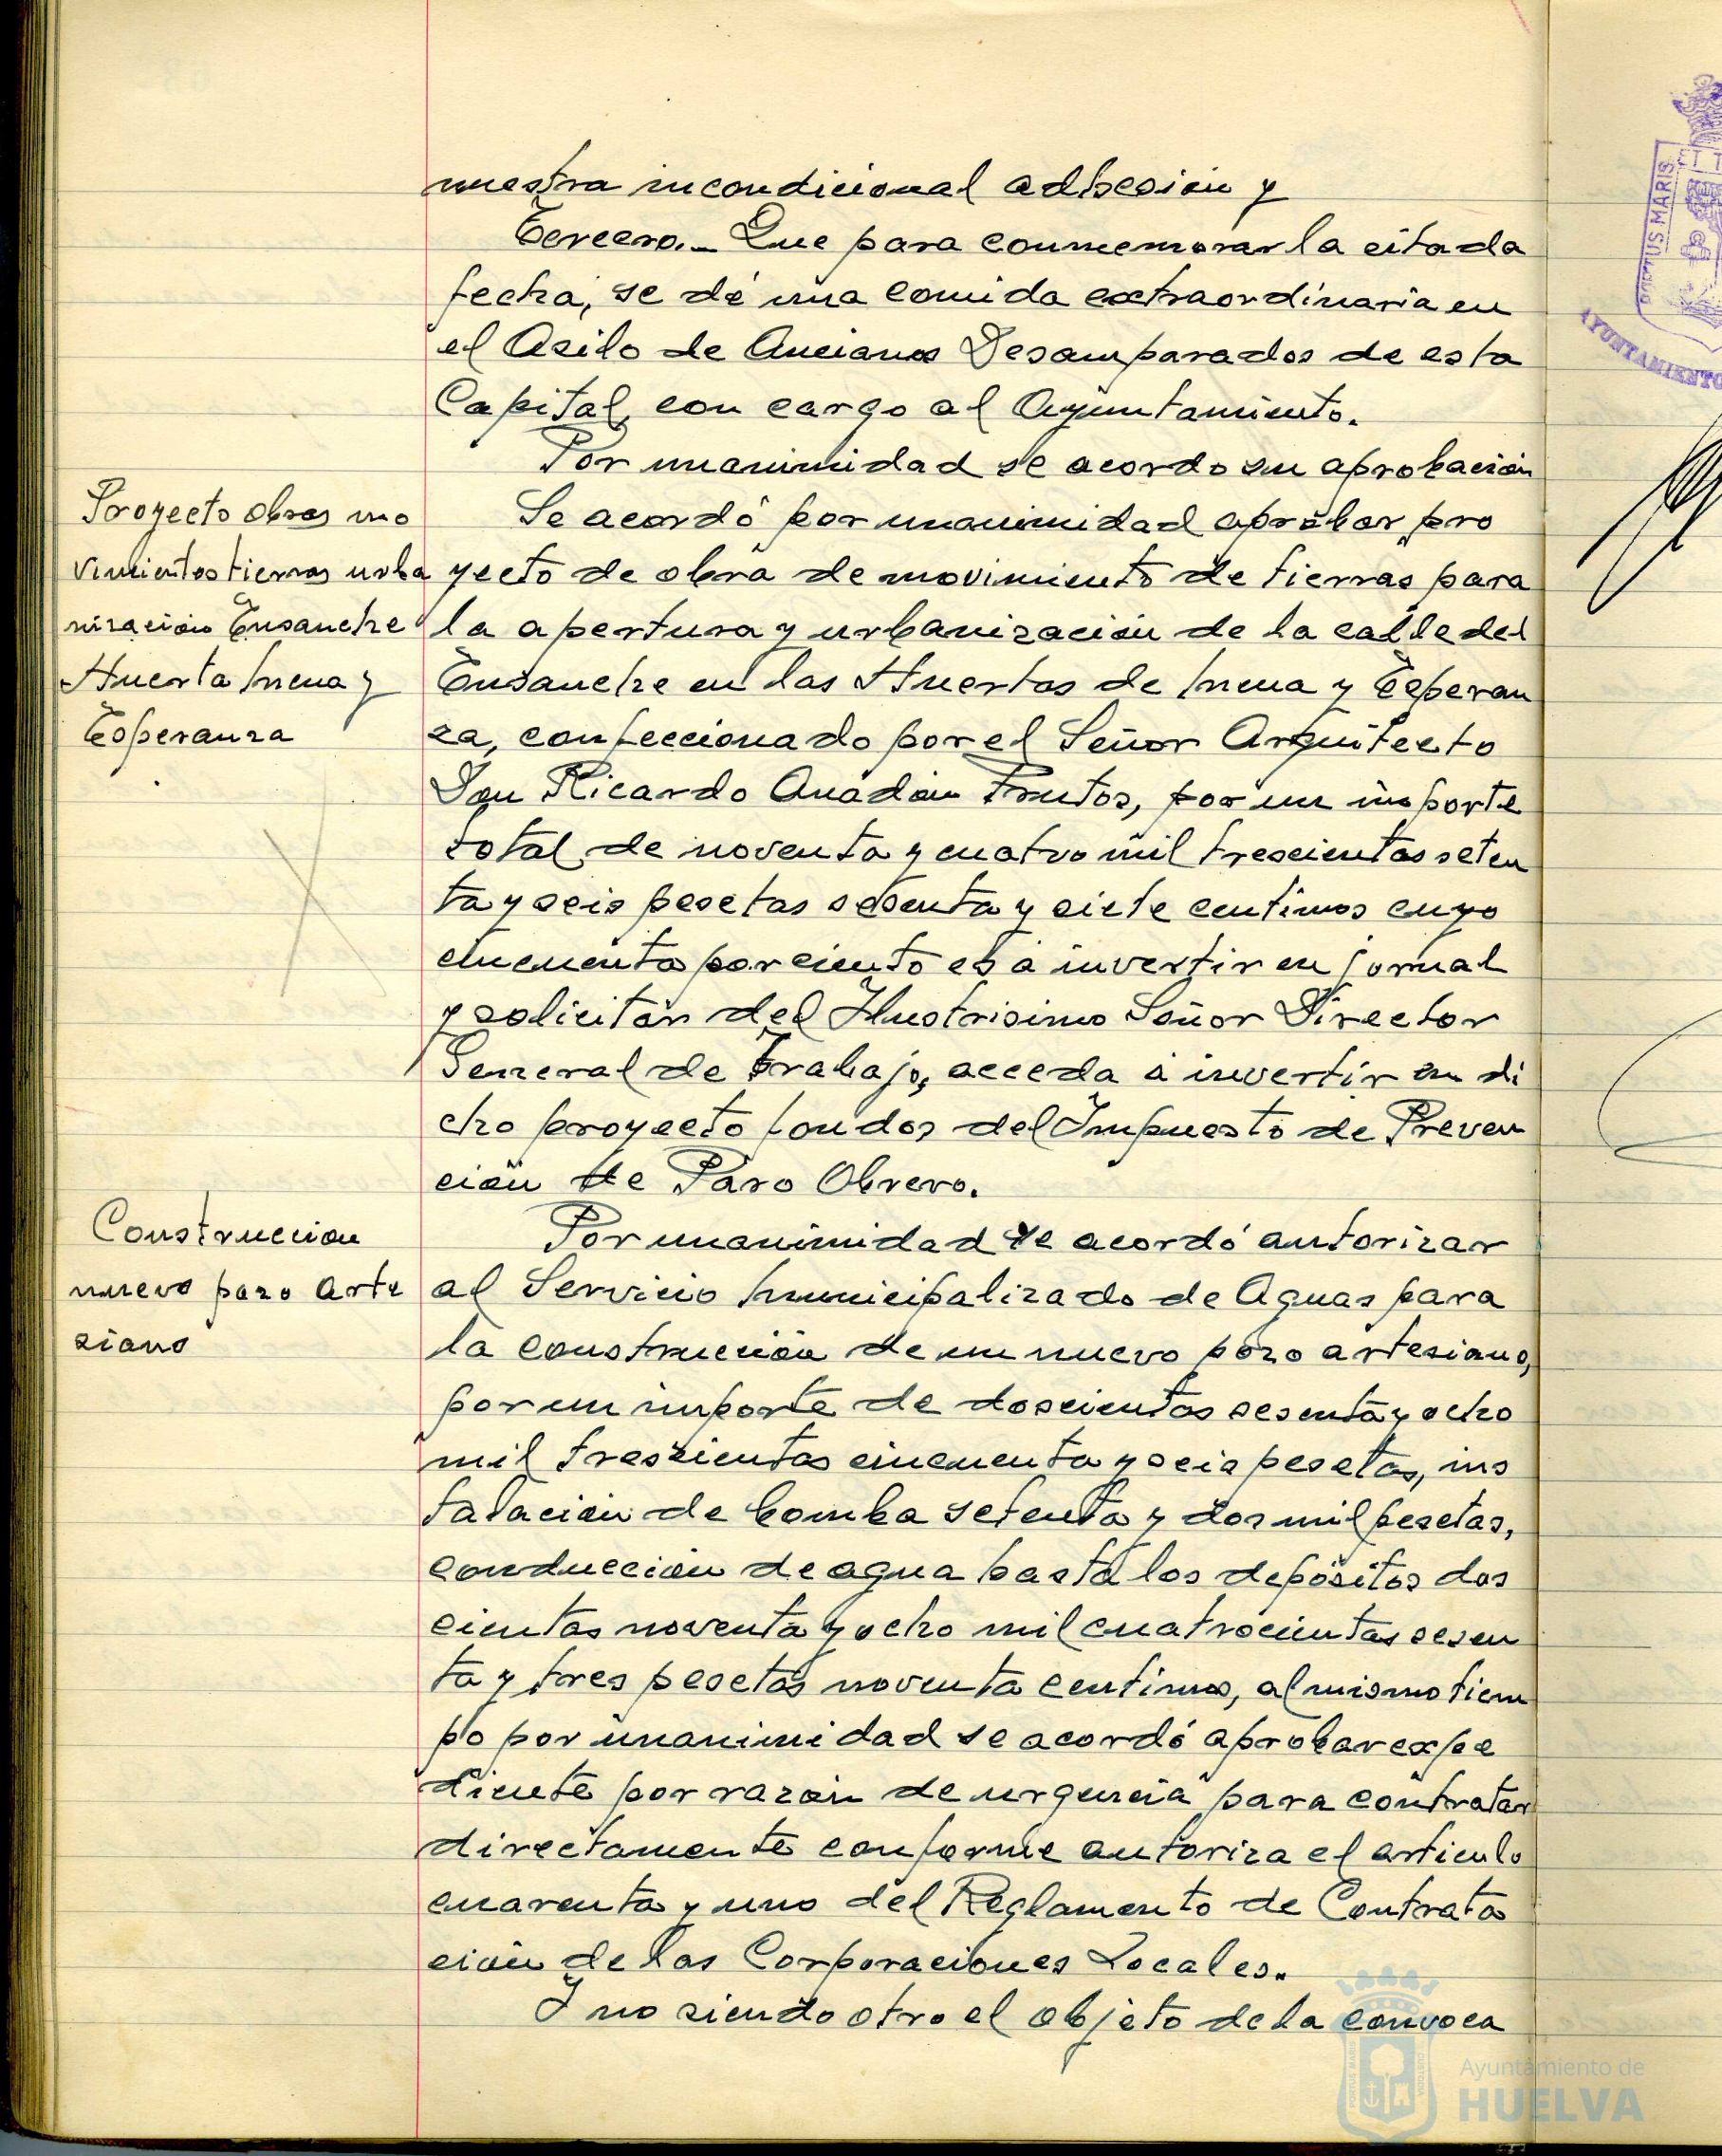 nuestra incondicional adhesión y
Tercero.- Que para conmemorar la citada
fecha, se dé una comida extraordinaria en
el Asilo de Ancianos Desamparados de esta
Capital, con cargo al Ayuntamiento.
Por unanimidad se acordo su aprobación
Proyecto obras mo
vimientos tierras urba
nización Ensanche
Huerta Mena y
Esperanza
Se acordó por unanimidad aprobar pro
yecto de obra de movimiento de tierras para
la apertura y urbanización de la calle del
Ensanche en las Huertas de Mena y Esperan
za, confeccionado por el Señor Arquitecto
Don Ricardo Anadón Frutos, por un importe
total de noventa y cuatro mil trescientas seten
ta y seis pesetas sesenta y siete centimos cuyo
cincuenta por ciento es a invertir en jornal
y solicitar del Ilustrisimo Señor Director
General de Trabajo, acceda a invertir en di
cho proyecto fondos del Impuesto de Preven
ción de Paro Obrero.
Construccion
nuevo pozo arte
siano
Por unanimidad se acordó autorizar
al Servicio Municipalizado de Aguas para
la construcción de un nuevo pozo artesiano,
por un importe de doscientas sesenta y ocho
mil trescientas cincuenta y seis pesetas, ins
talación de bomba setenta y dos mil pesetas,
conducción de agua hasta los depósitos dos
cientas noventa y ocho mil cuatrocientas sesen
ta y tres pesetas noventa centimos, al mismo tiem
po por unanimidad se acordó aprobar expe
diente por razón de urgencia para contratar
directamente conforme autoriza el articulo
cuarenta y uno del Reglamento de Contrata
ción de las Corporaciones Locales.
Y no siendo otro el objeto de la convoca
PORTUS MARIS
ET T
AYUNTAMIENTO
Ayuntamiento de
HUELVA